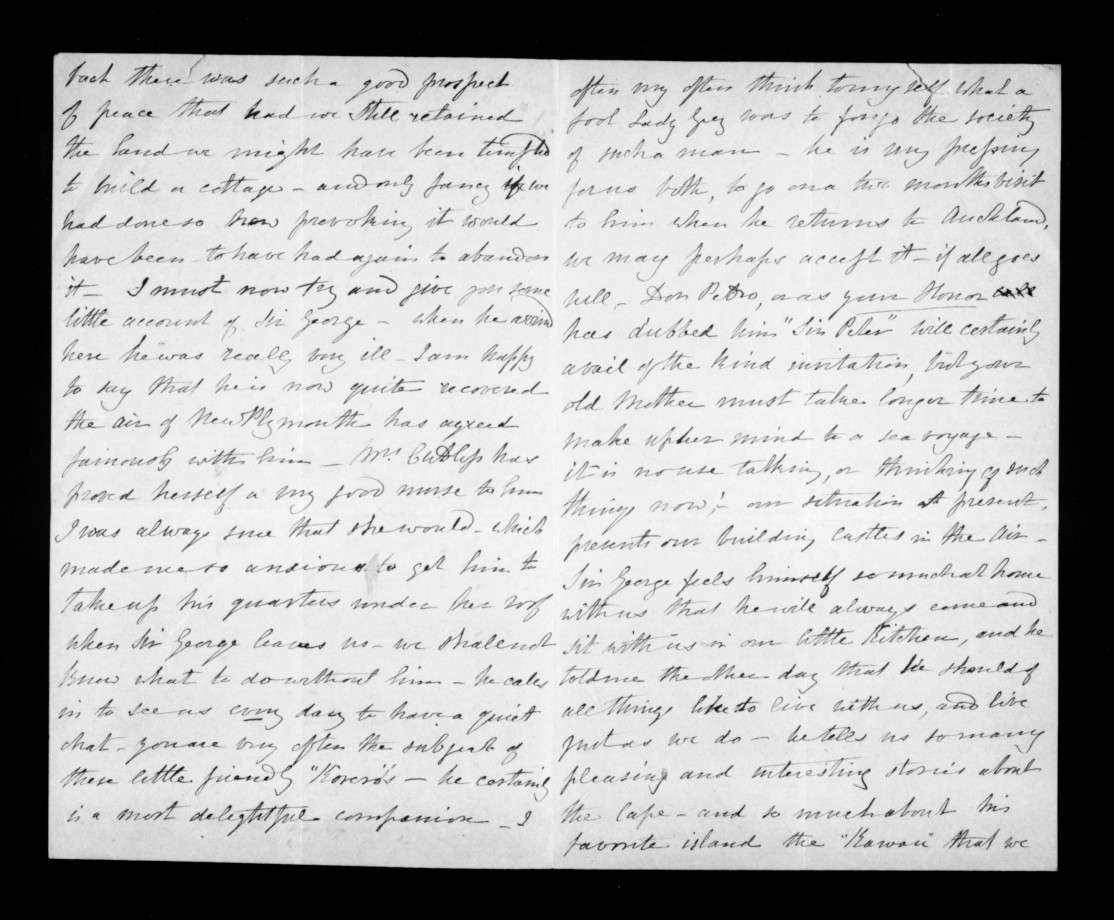 fact there was such a good prospect
of peace that had we still retained
the land we might have been tempted
to build a cottage - and only fancy if we
had done so how provoking it would
have been - to have had again to abandon
it - I must now try and give you some
little account of Sir George - when he arrived
here he was really very ill - I am happy
to say that he is now quite recovered
the air of New Plymouth has agreed
famously with him - Mrs Cutlips has
proved herself a very good nurse to him
I was always sure that she would - which
made me so anxious to get him to
take up his quarters under her roof
when Sir George leaves us - we shall not
know what to do without him - he calls
in to see us every day to have a quiet
chat - you are very often the subject of
these little friendly "Korero's - he certainly
is a most delightful companion - I
often very often think to myself what a
fool Lady Grey was to forgo the society
of such a man - he is very pressing
for us both, to go on a two months visit
to him when he returns to Auckland,
we may perhaps accept it - if all goes
well - Don Pedro, or as your Honor
has dubbed him "Sir Peter" will certainly
avail of the kind invitation, but your
old Mother must take longer time to
make up her mind to a sea voyage -
it is no use talking, or thinking of such
things now! - our situation at present,
presents our building castles in the Air -
Sir George feels himself so much at home
with us that he will always come and
sit with us in our little Kitchen, and he
told me the other day that he should of
all things like to live with us, and live
just as we do - he tells us so many
pleasing and interesting stories about
the Cape - and so much about his
favorite island the "Kawau" that we